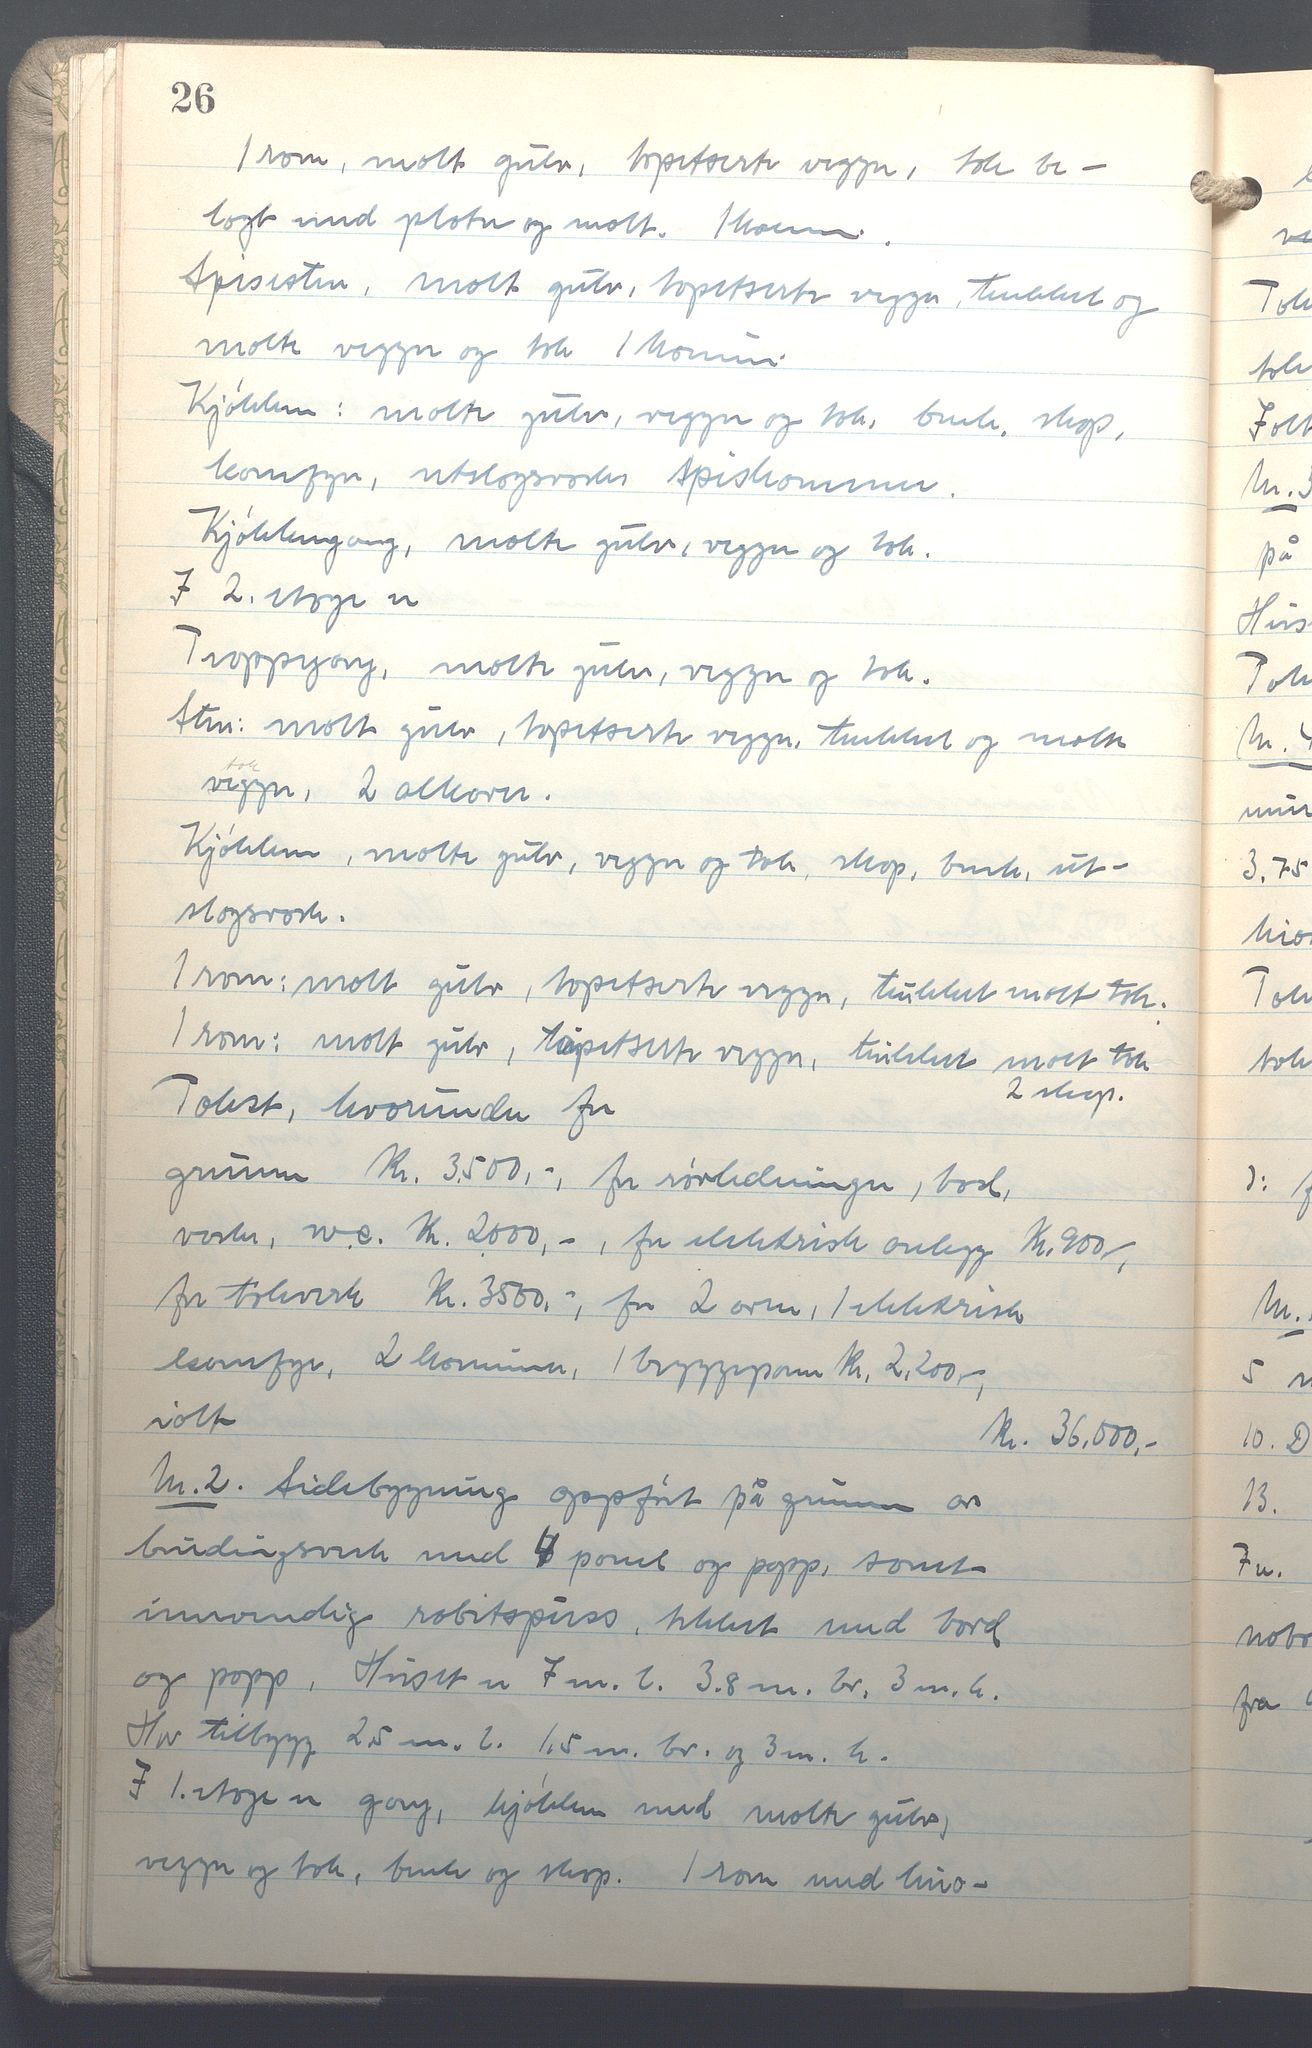 26
1 rom, malt gulv, tapetserte vegger, tak be-
lagt med plater og malt. 1 kamin.
Spisestue, malt gulv, tapetserte vegger, trukket og
malte vegger og tak 1 kamin.
Kjøkken: malte gulv, vegger og tak, benk, skap,
komfyr, utslagsvask, spiskammer.
Kjøkkengang, malte gulv, vegger og tak.
I 2. etage er
Trappegang, malte gulv, vegger og tak.
Stue: malt gulv, tapetserte vegger, trukket og malte
tak
vegger, 2 alkover.
Kjøkken, malte gulv, vegger og tak, skap, benk, ut-
slagsvask.
1 rom: malt gulv, tapetserte vegger, trukket malt tak.
1 rom: malt gulv, tapetserte vegger, trukket malt tak
2 skap.
Takst, hvorunder for
grunn Kr. 3.500,-, for rørledninger, bad,
vasker, w.c. Kr. 2.000,-, for elektrisk anlegg Kr. 900,-,
for takverk Kr. 3500,-, for 2 ovner, 1 elektrisk
komfyr, 2 kaminer, 1 bryggepanne Kr. 2.200,-,
ialt Kr. 36.000,-
Nr. 2. Sidebygning oppført på grunn av
bindingsverk med 4 panel og papp, samt
innvendig rabitspuss, tekket med bord
og papp. Huset er 7 m. l. 3.8 m. br. 3 m. h.
Har tilbygg 2.5 m. l. 1.5 m. br. og 3 m. h.
I 1. etage er gang, kjøkken med malte gulv,
vegger og tak, benk og skap. 1 rom med lino-